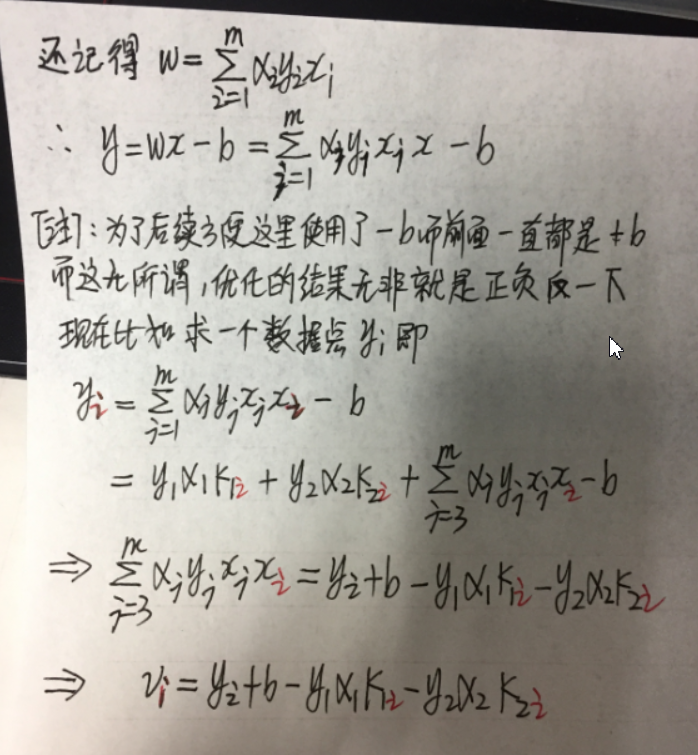 还记得 w = Σ_{i=1}^{m} α_i y_i x_i
∴ y = wx - b = Σ_{j=1}^{m} α_j y_j x_j x - b
[注]: 为了后续方便这里使用了 -b 而前面一直都是 +b
而这无所谓, 优化的结果无非就是正负反一下
现在比如求一个数据点 y_i 即
y_i = Σ_{j=1}^{m} α_j y_j x_j x_i - b
= y_1 α_1 K_{1i} + y_2 α_2 K_{2i} + Σ_{j=3}^{m} α_j y_j x_j x_i - b
⇒ Σ_{j=3}^{m} α_j y_j x_j x_i = y_i + b - y_1 α_1 K_{1i} - y_2 α_2 K_{2i}
⇒ v_i = y_i + b - y_1 α_1 K_{1i} - y_2 α_2 K_{2i}